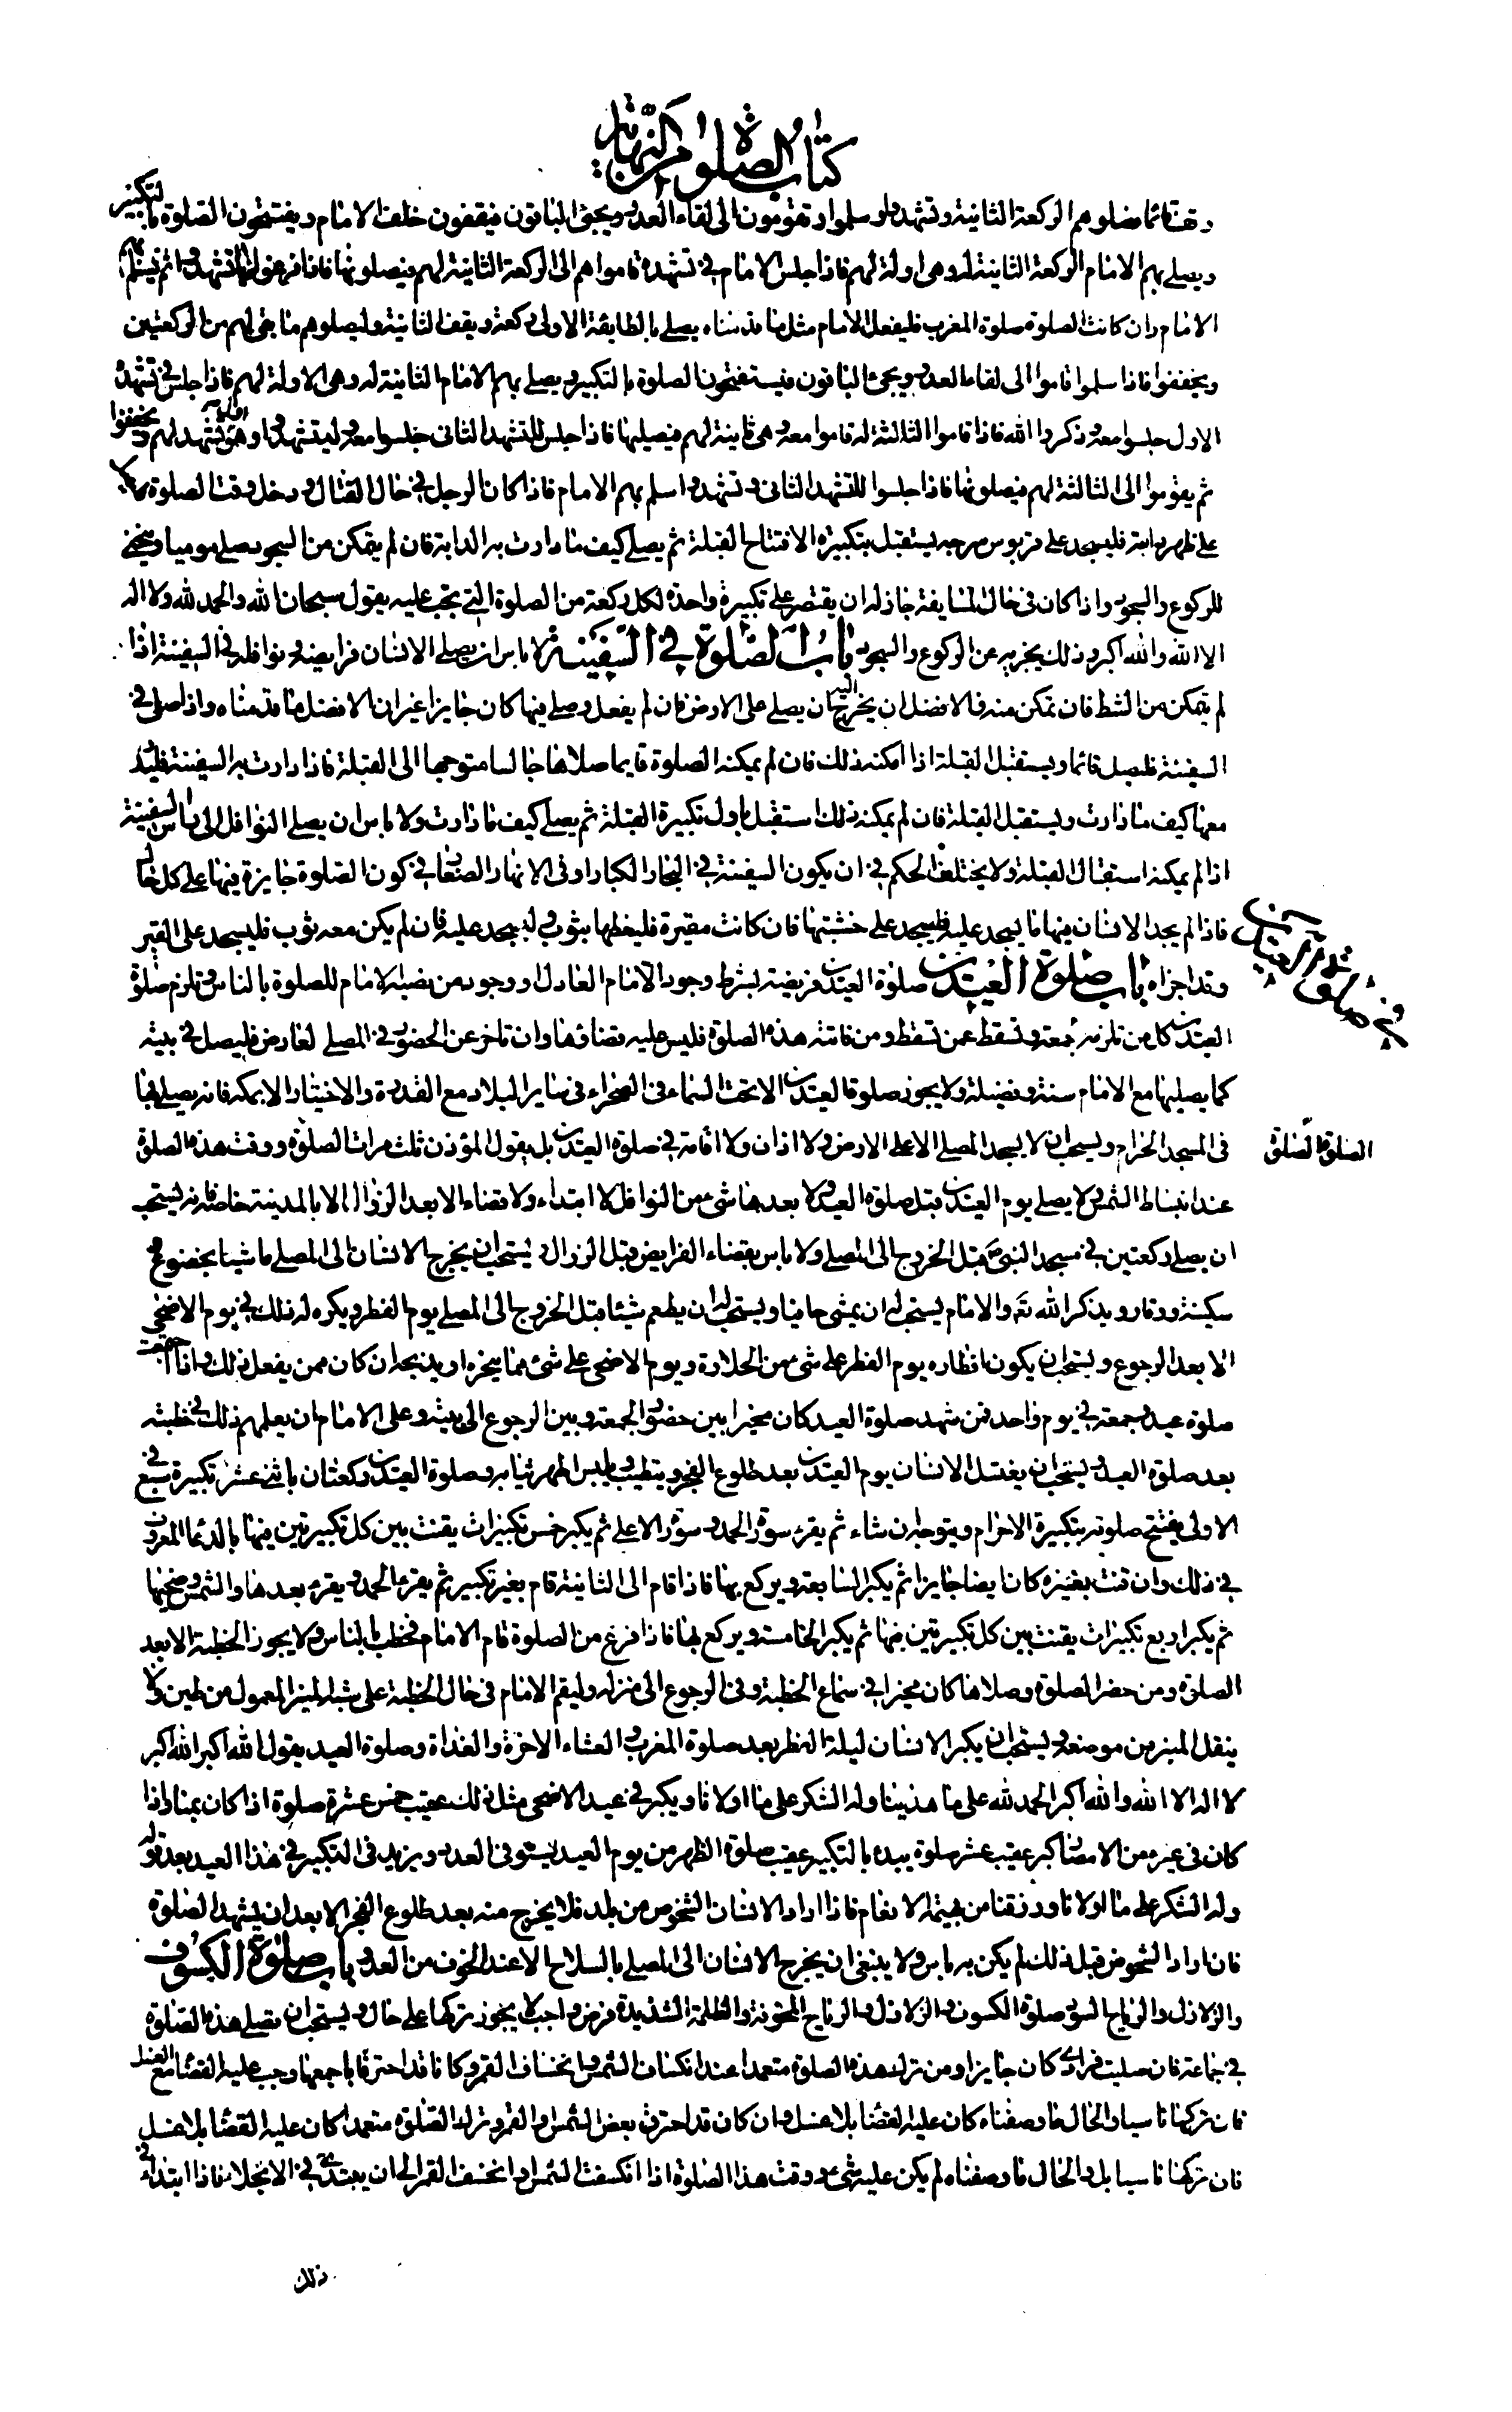 كتاب الصلوة من النهاية
وقف قائما وصلوا هم الركعة الثانية وتشهدوا وسلموا ويقومون الى لقاء العدو ويجئ الباقون فيقفون خلف الامام ويفتتحون الصلوة بالتكبير
ويصلى بهم الامام الركعة الثانية له وهى اولة لهم فاذا جلس الامام فى تشهده قاموا هم الى الركعة الثانية لهم فيصلونها فاذا فرغوا منها تشهدوا ثم يسلم بهم
الامام وان كانت الصلوة صلوة المغرب فليفعل الامام مثل ما قدمناه يصلى بالطايفة الاولى ركعة ويقف الثانية وليصلوا هم ما بقى لهم من الركعتين
ويخففوا فاذا سلموا قاموا الى لقاء العدو ويجئ الباقون فيستفتحون الصلوة بالتكبير ويصلى بهم الامام الثانية له وهى الاولة لهم فاذا جلس فى تشهده
الاول جلسوا معه وذكروا الله فاذا قاموا الثالثة له قاموا معه وهى ثانية لهم فيصليها فاذا جلس للتشهد الثانى جلسوا معه وليتشهدوا وهو اول تشهد لهم ويخففوا
ثم يقوموا الى الثالثة لهم فيصلونها فاذا جلسوا للتشهد الثانى وتشهدوا سلم بهم الامام فاذا كان الرجل فى حال القتال ودخل وقت الصلوة
على ظهر دابته فليسجد على قربوس سرجه يستقبل بتكبيرة الافتتاح القبلة ثم يصلى كيف ما دارت به الدابة فان لم يتمكن من السجود صلى موميا وينحنى
للركوع والسجود واذا كان فى حال المسايفة جاز له ان يقتصر على تكبيرة واحدة لكل ركعة من الصلوة التى تجب عليه يقول سبحان الله والحمد لله ولا اله
الا الله والله اكبر وذلك يجزيه عن الركوع والسجود باب الصلوة فى السفينة لا باس ان يصلى الانسان فرايضه ونوافله فى السفينة اذا
لم يتمكن من الشط فان تمكن منه فالافضل ان يخرج اليه وان يصلى على الارض فان لم يفعل وصلى فيها كان جايزا غير ان الافضل ما قدمناه واذا صلى فى
السفينة فليصل قائما ويستقبل القبلة اذا امكنه ذلك فان لم يمكنه الصلوة قايما صلاها جالسا متوجها الى القبلة فاذا دارت به السفينة فليدر
معها كيف ما دارت ويستقبل القبلة فان لم يمكنه ذلك استقبل باول تكبيرة القبلة ثم يصلى كيف ما دارت ولا باس ان يصلى النوافل الى راس السفينة
اذا لم يمكنه استقبال القبلة ولا يختلف الحكم فى ان يكون السفينة فى البحار الكبار او فى الانهار الصغار فى كون الصلوة جايزة فيها على كل حال
فاذا لم يجد الانسان فيها ما يسجد عليه فليسجد على خشبتها فان كانت مقيرة فليغطها بثوب له يسجد عليه فان لم يكن معه ثوب فليسجد على القير
وقد اجزاه باب صلوة العيدين صلوة العيدين فريضة بشرط وجود الامام العادل او وجود من نصبه الامام للصلوة بالناس وتلزم صلوة
العيدين كل من تلزمه جمعة وتسقط عمن تسقط ومن فاتته هذه الصلوة فليس عليه قضاؤها وان تاخر عن الحضور فى المصلى لعارض فليصل فى بيته
كما يصليها مع الامام سنة وفضيلة ولا يجوز صلوة العيدين الا تحت السماء فى الصحراء فى ساير البلاد مع القدرة والاختيار الا بمكة فانه يصلى بها
فى المسجد الحرام ويستحب ان لا يسجد المصلى الا على الارض ولا اذان ولا اقامة فى صلوة العيدين بل يقول المؤذن ثلث مرات الصلوة ووقت هذه الصلوة
الصلوة الصلوة
عند انبساط الشمس لا يصلى يوم العيدين قبل صلوة العيد ولا بعدها شئ من النوافل لا ابتداء ولا قضاء الا بعد الزوال الا بالمدينة خاصة فانه يستحب
ان يصلى ركعتين فى مسجد النبى قبل الخروج الى المصلى ولا باس بقضاء الفرايض قبل الزوال ويستحب ان يخرج الانسان الى المصلى ماشيا بخضوع
سكينة ووقار ويذكر الله تع والامام يستحب له ان يمشى حافيا ويستحب له ان يطعم شيئا قبل الخروج الى المصلى يوم الفطر ويكره له ذلك فى يوم الاضحى
الا بعد الرجوع ويستحب ان يكون افطاره يوم الفطر على شئ من الحلاوة ويوم الاضحى على شئ مما ينحره او يذبحه ان كان ممن يفعل ذلك واذا اجتمعت
صلوة عيد وجمعة فى يوم واحد فمن شهد صلوة العيد كان مخيرا بين حضور الجمعة وبين الرجوع الى بيته وعلى الامام ان يعلمهم ذلك فى خطبته
بعد صلوة العيد ويستحب ان يغتسل الانسان يوم العيدين بعد طلوع الفجر ويتطيب ويلبس اطهر ثيابه وصلوة العيدين ركعتان باثنى عشر تكبيرة سبع فى
الاولى يفتتح صلوته بتكبيرة الاحرام ويتوجه ان شاء ثم يقرء سورة الحمد وسورة الاعلى ثم يكبر خمس تكبيرات يقنت بين كل تكبيرتين منها بالدعا المعروف
فى ذلك وان قنت بغيره كان ايضا جايزا ثم يكبر السابعة ويركع بها فاذا قام الى الثانية قام بغير تكبير ثم يقرء الحمد ويقرء بعدها والشمس وضحيها
ثم يكبر اربع تكبيرات يقنت بين كل تكبيرتين منها ثم يكبر الخامسة ويركع بها فاذا فرغ من الصلوة قام الامام فخطب بالناس ولا يجوز الخطبة الا بعد
الصلوة ومن حضر الصلوة وصلاها كان مخيرا فى سماع الخطبة وفى الرجوع الى منزله وليقم الامام فى حال الخطبة على شبه المنبر المعمول من طين ولا
ينقل المنبر من موضعه ويستحب ان يكبر الانسان ليلة الفطر بعد صلوة المغرب والعشاء الاخرة والغداة وصلوة العيد يقول الله اكبر الله اكبر
لا اله الا الله والله اكبر الحمد لله على ما هدينا وله الشكر على ما اولانا ويكبر فى عيد الاضحى مثل ذلك عقيب خمس عشرة صلوة اذا كان بمنا واذا
كان فى غيره من الامصار كبر عقيب عشر صلوة يبدء بالتكبير عقيب صلوة الظهر من يوم العيد يستوفى العدد ويزيد فى التكبير فى هذا العيد بعد قوله
وله الشكر على ما اولانا ورزقنا من بهيمة الانعام فاذا اراد الانسان الشخوص من بلد فلا يخرج منه بعد طلوع الفجر الا بعد ان يشهد الصلوة
فان اراد الشخوص قبل ذلك لم يكن به باس ولا ينبغى ان يخرج الانسان الى المصلى بالسلاح الا عند الخوف من العدو باب صلوة الكسوف
والزلازل والرياح السود صلوة الكسوف والزلازل والرياح المخوفة والظلمة الشديدة فرض واجب لا يجوز تركها على حال ويستحب ان تصلى هذه الصلوة
فى جماعة فان صليت فرادى كان جايزا ومن ترك هذه الصلوة متعمدا عند انكساف الشمس وانخساف القمر وكانا قد احترقا باجمعهما وجب عليه القضا مع الغسل
فان تركها ناسيا والحال ما وصفناه كان عليه القضا بلا غسل وان كان قد احترق بعض الشمس والقمر وترك الصلوة متعمدا كان عليه القضا بلا غسل
فان تركها ناسيا والحال ما وصفناه لم يكن عليه شئ ووقت هذا الصلوة اذا انكسفت الشمس وانخسف القمر الى ان يبتدئ فى الانجلاء فاذا ابتداء فى
ذلك